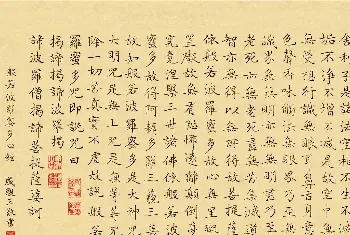 舍利子是諸法空相不生不滅
垢不淨不增不減是故空中無
無受想行識無眼耳鼻舌身意
色聲香味觸法無眼界乃至無
識界無無明亦無無明盡乃至
老死亦無老死盡無苦集滅道
智亦無得以無所得故菩提薩
依般若波羅蜜多故心無罣
罣礙故無有恐怖遠離顛倒夢
究竟涅槃三世諸佛依般若波
蜜多故得阿耨多羅三藐三菩
故知般若波羅蜜多是大神咒
大明咒是無上咒是無等等咒
除一切苦真實不虛故說般若
羅蜜多咒即說咒曰
揭諦揭諦波羅揭
諦波羅僧揭諦菩提薩婆訶
般若波羅蜜多心經